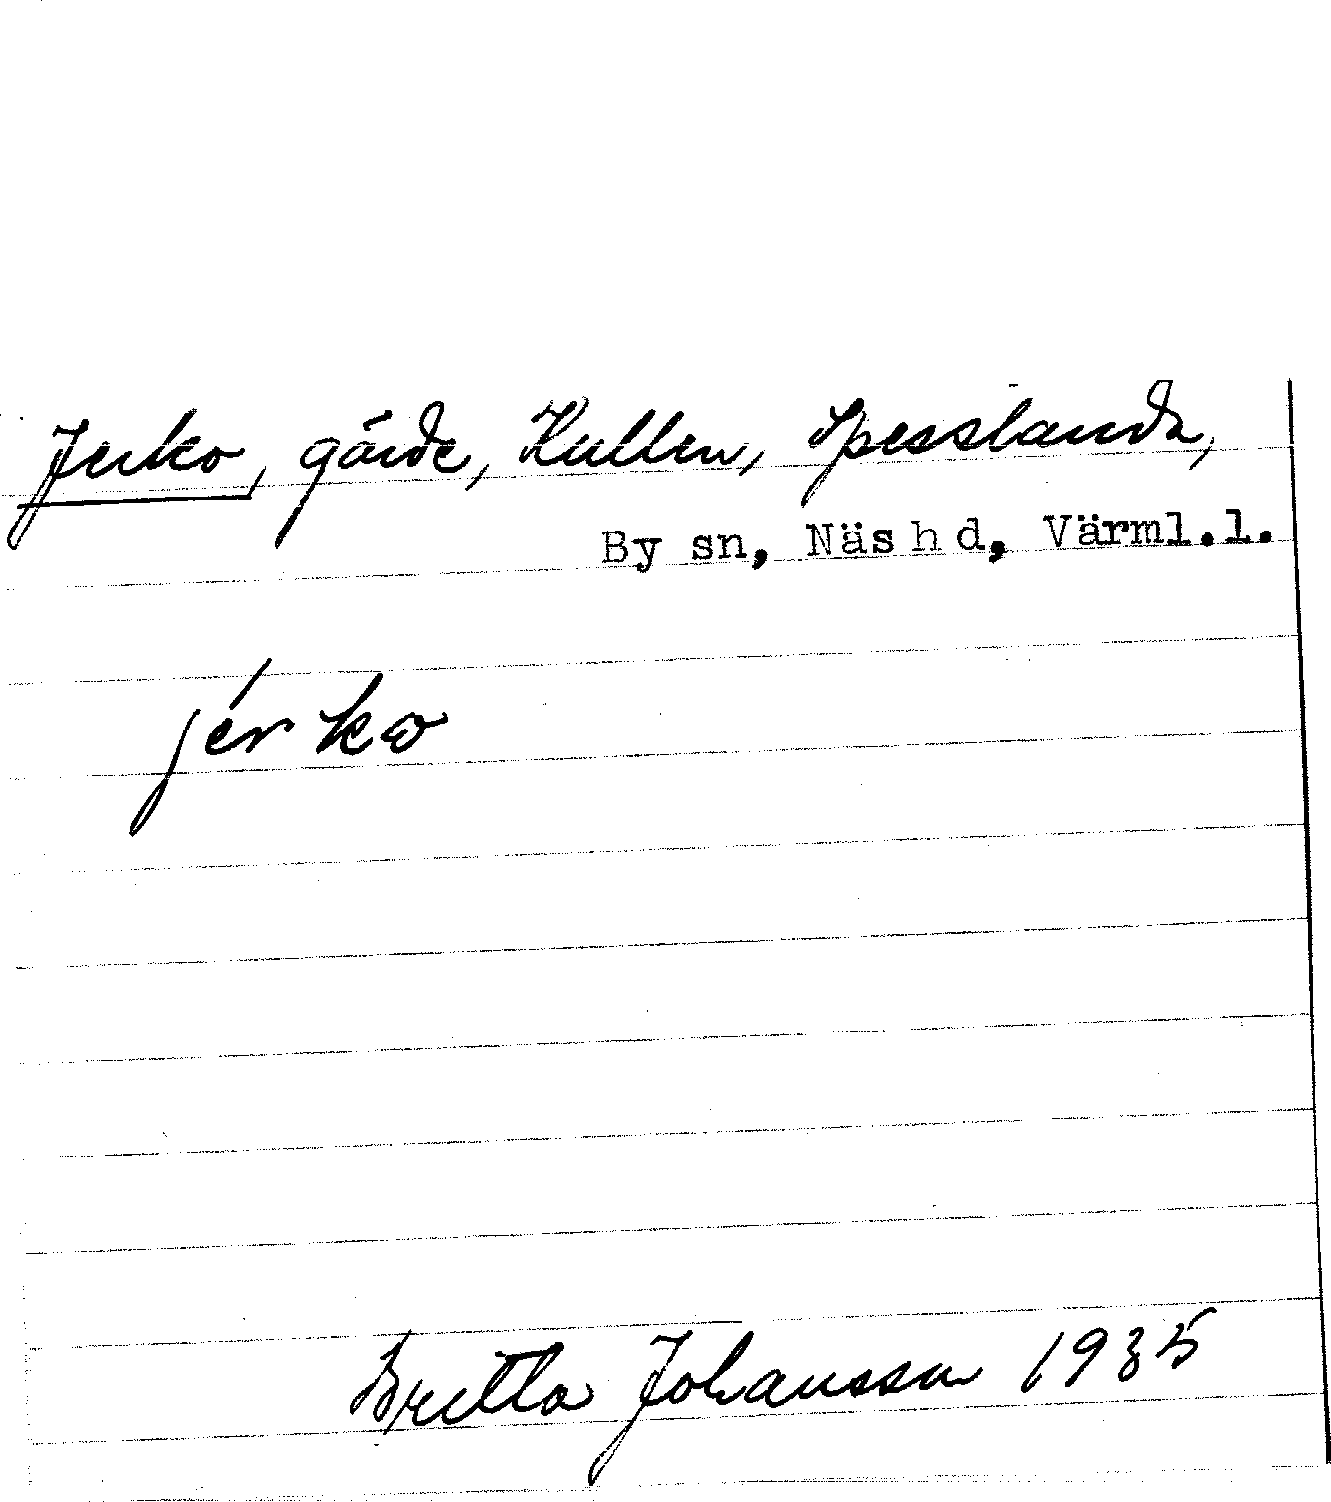 Jerko, gärde, Kullen, Spesslanda,
By sn, Näs hd, Värml.l.
jérkω
Britta Johansson 1935